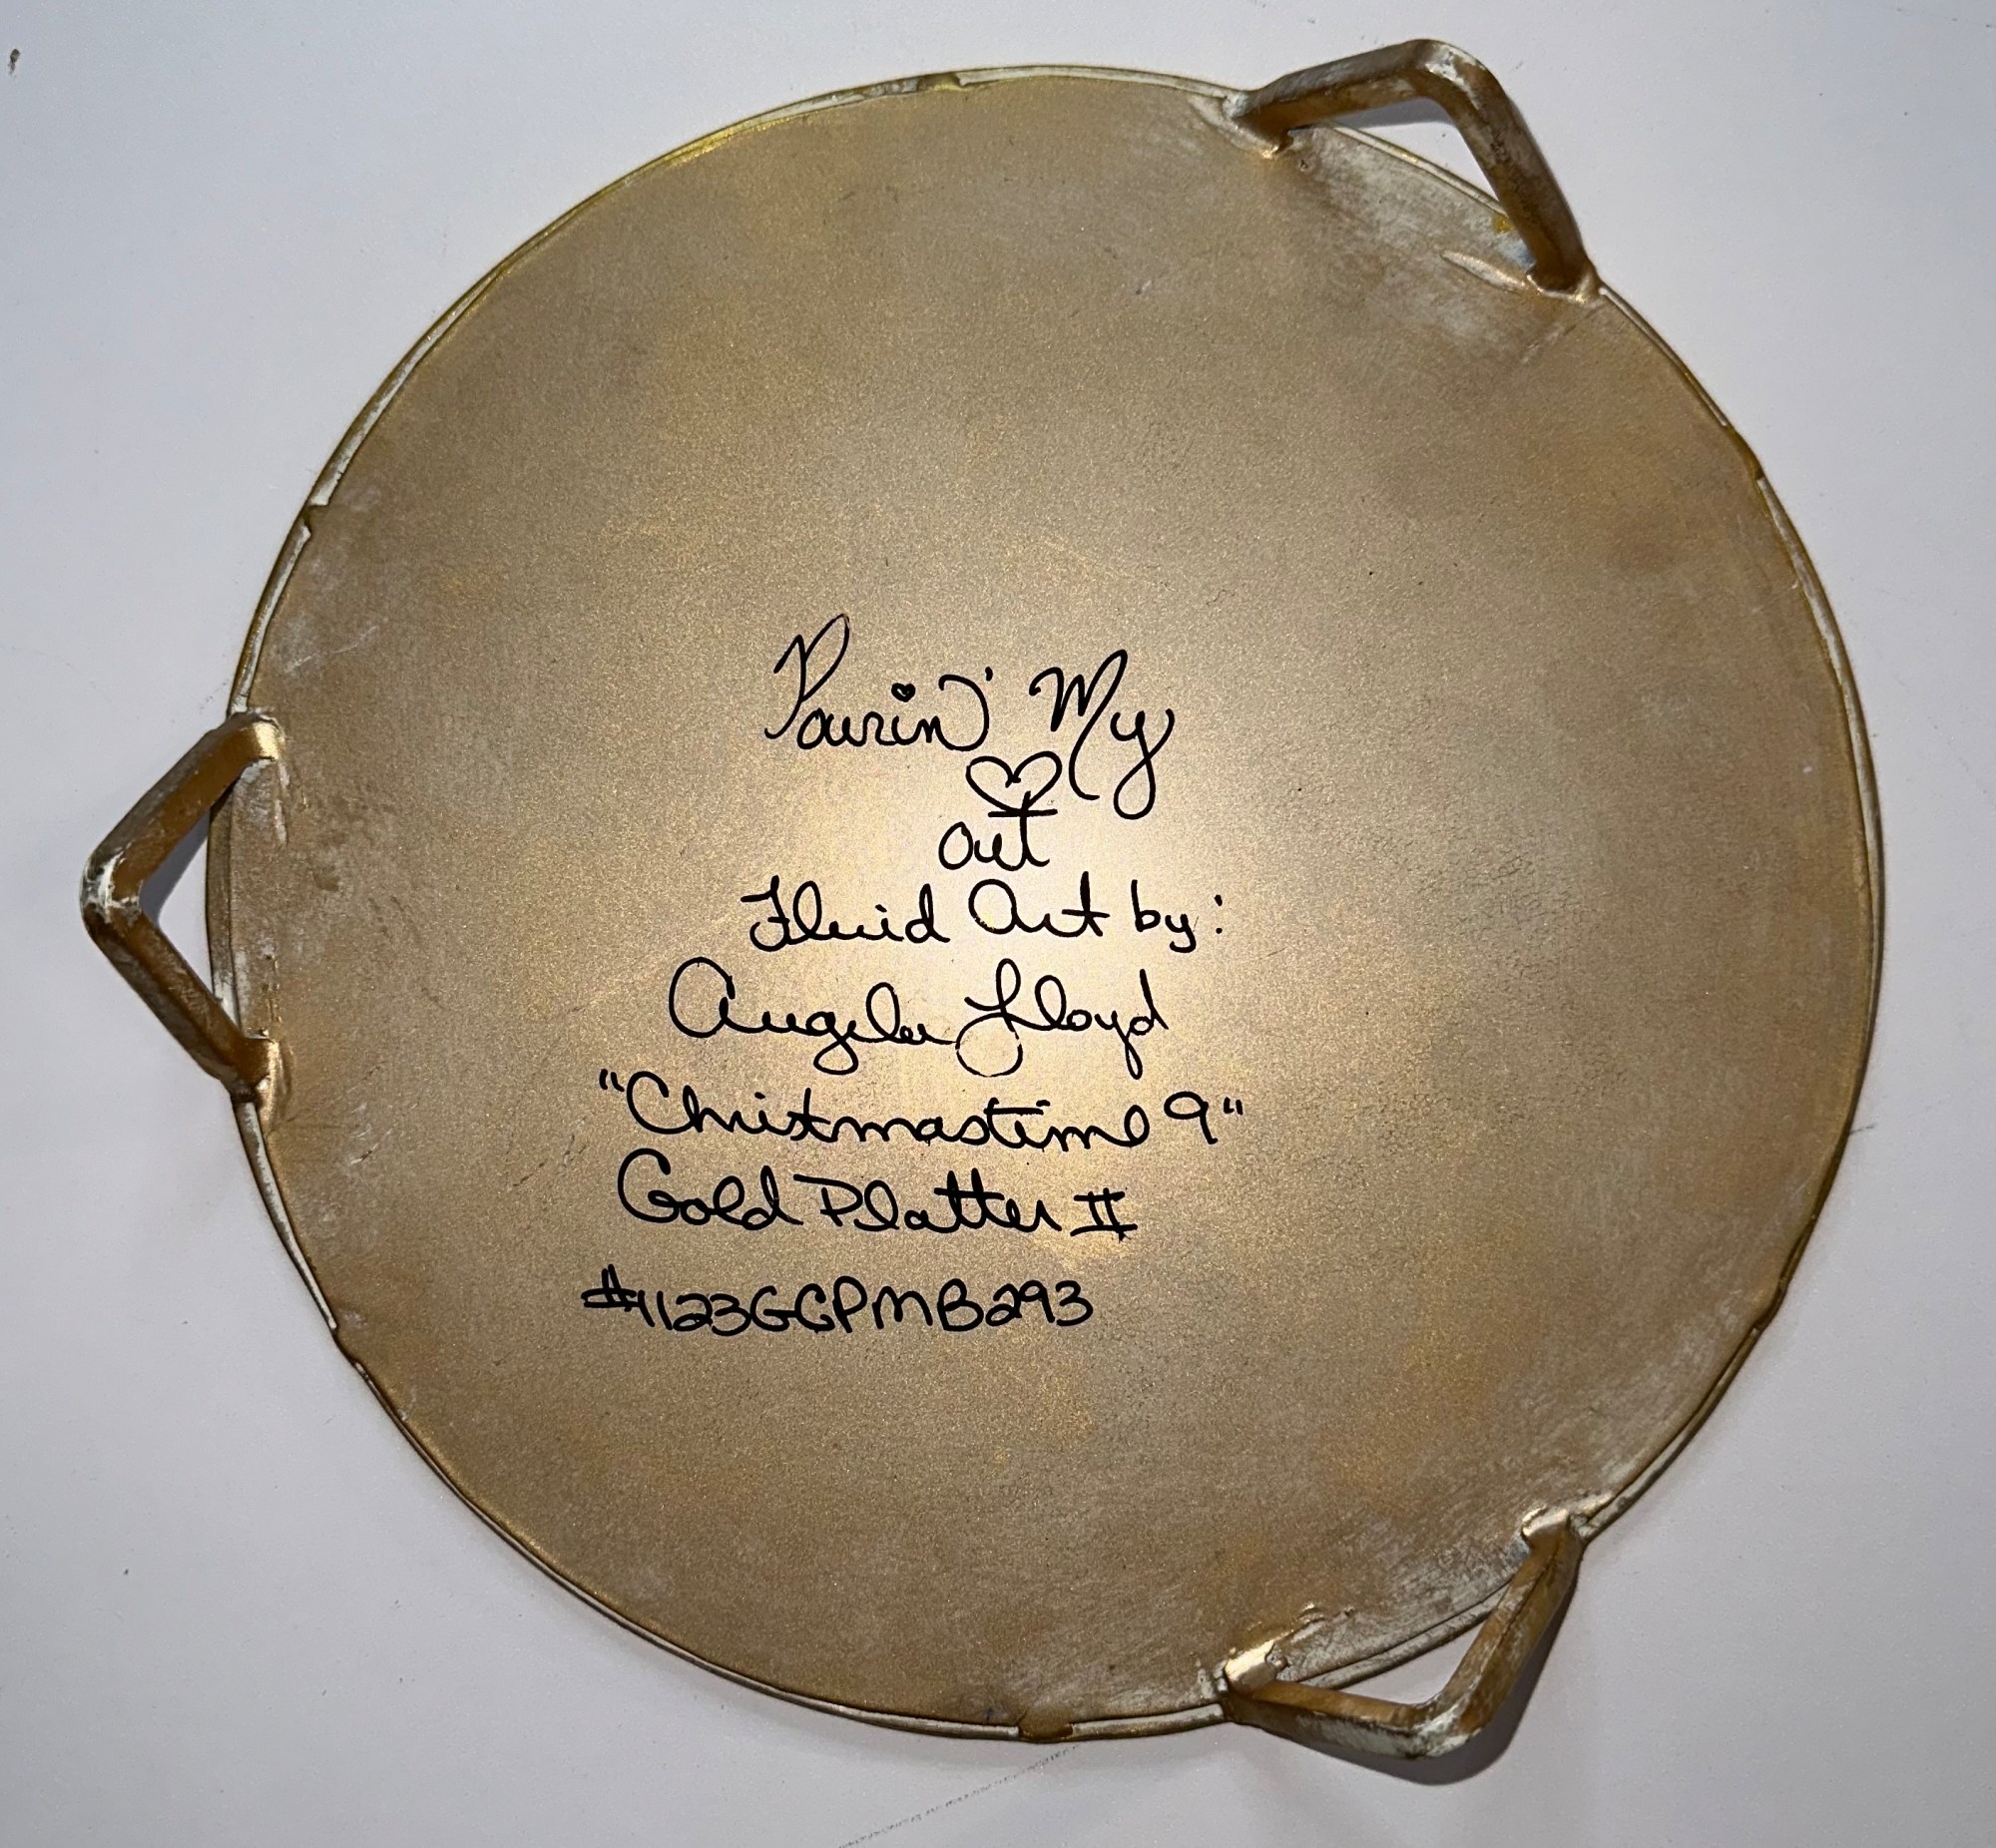 Pourin' My
♡
out
Fluid Art by:
Angela Lloyd
"Christmastime 9"
Gold Platter II
#1123GCPMB293